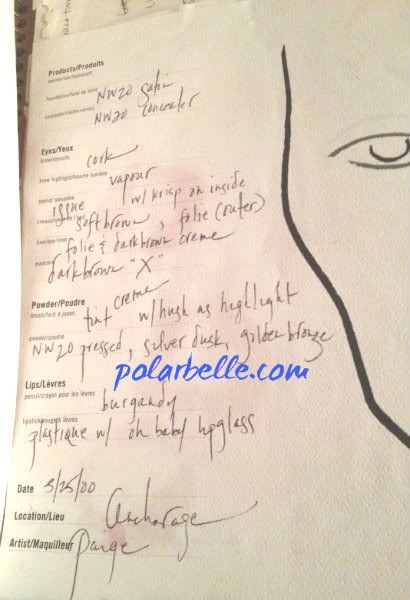 Products/Produits
moisturiser/hydratant
foundation/fond de teint NW20 Satin
concealer/cache-cernes NW20 Concealer
Eyes/Yeux
brow/sourcils cork
brow highlight/touche lumière vapour
issue w/ krisp on inside
soft brown, folie (outer)
folie & darkbrown creme
mascara darkbrown "X"
Powder/Poudre
blush/fard à joues tint creme w/ hush as highlight
powder/poudre
NW20 pressed, silver dusk, golden bronze
polarbelle.com
Lips/Lèvres
pencil/crayon pour les lèvres burgandy
plastique w/ oh baby lipglass
Date 3/25/00
Location/Lieu Anchorage
Artist/Maquilleur Paige